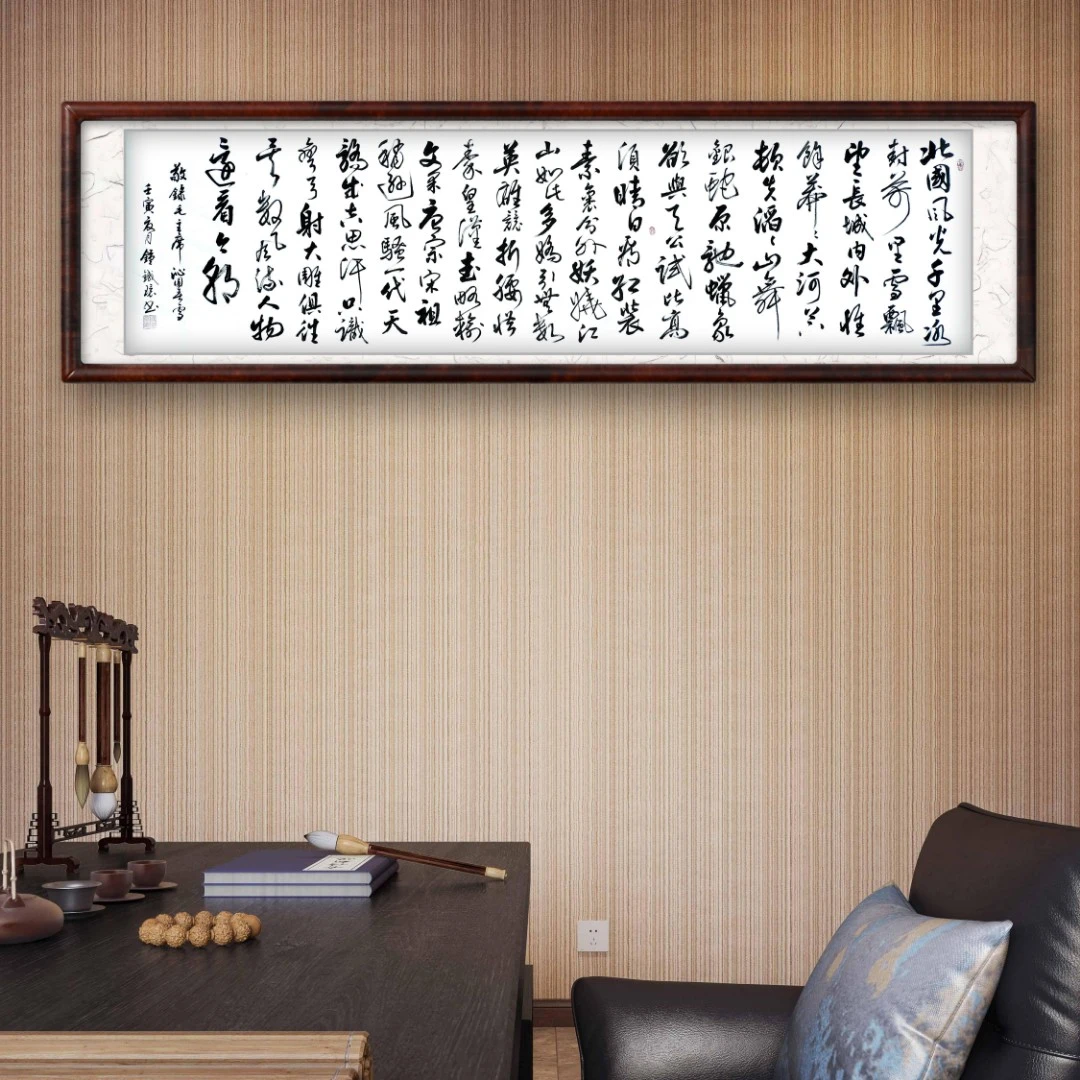 北國風光千里冰
封萬里雪飄
望長城内外惟
餘莽〻大河上下
頓失滔〻山舞
銀蛇原馳蠟象
欲與天公試比高
須晴日看紅裝
素裹分外妖嬈江
山如此多嬌引無數
英雄競折腰惜
秦皇漢武略輸
文采唐宗宋祖
稍遜風騷一代天
驕成吉思汗只識
彎弓射大雕俱往
矣數風流人物
還看今朝
敬錄毛主席沁園春雪
壬寅夏月